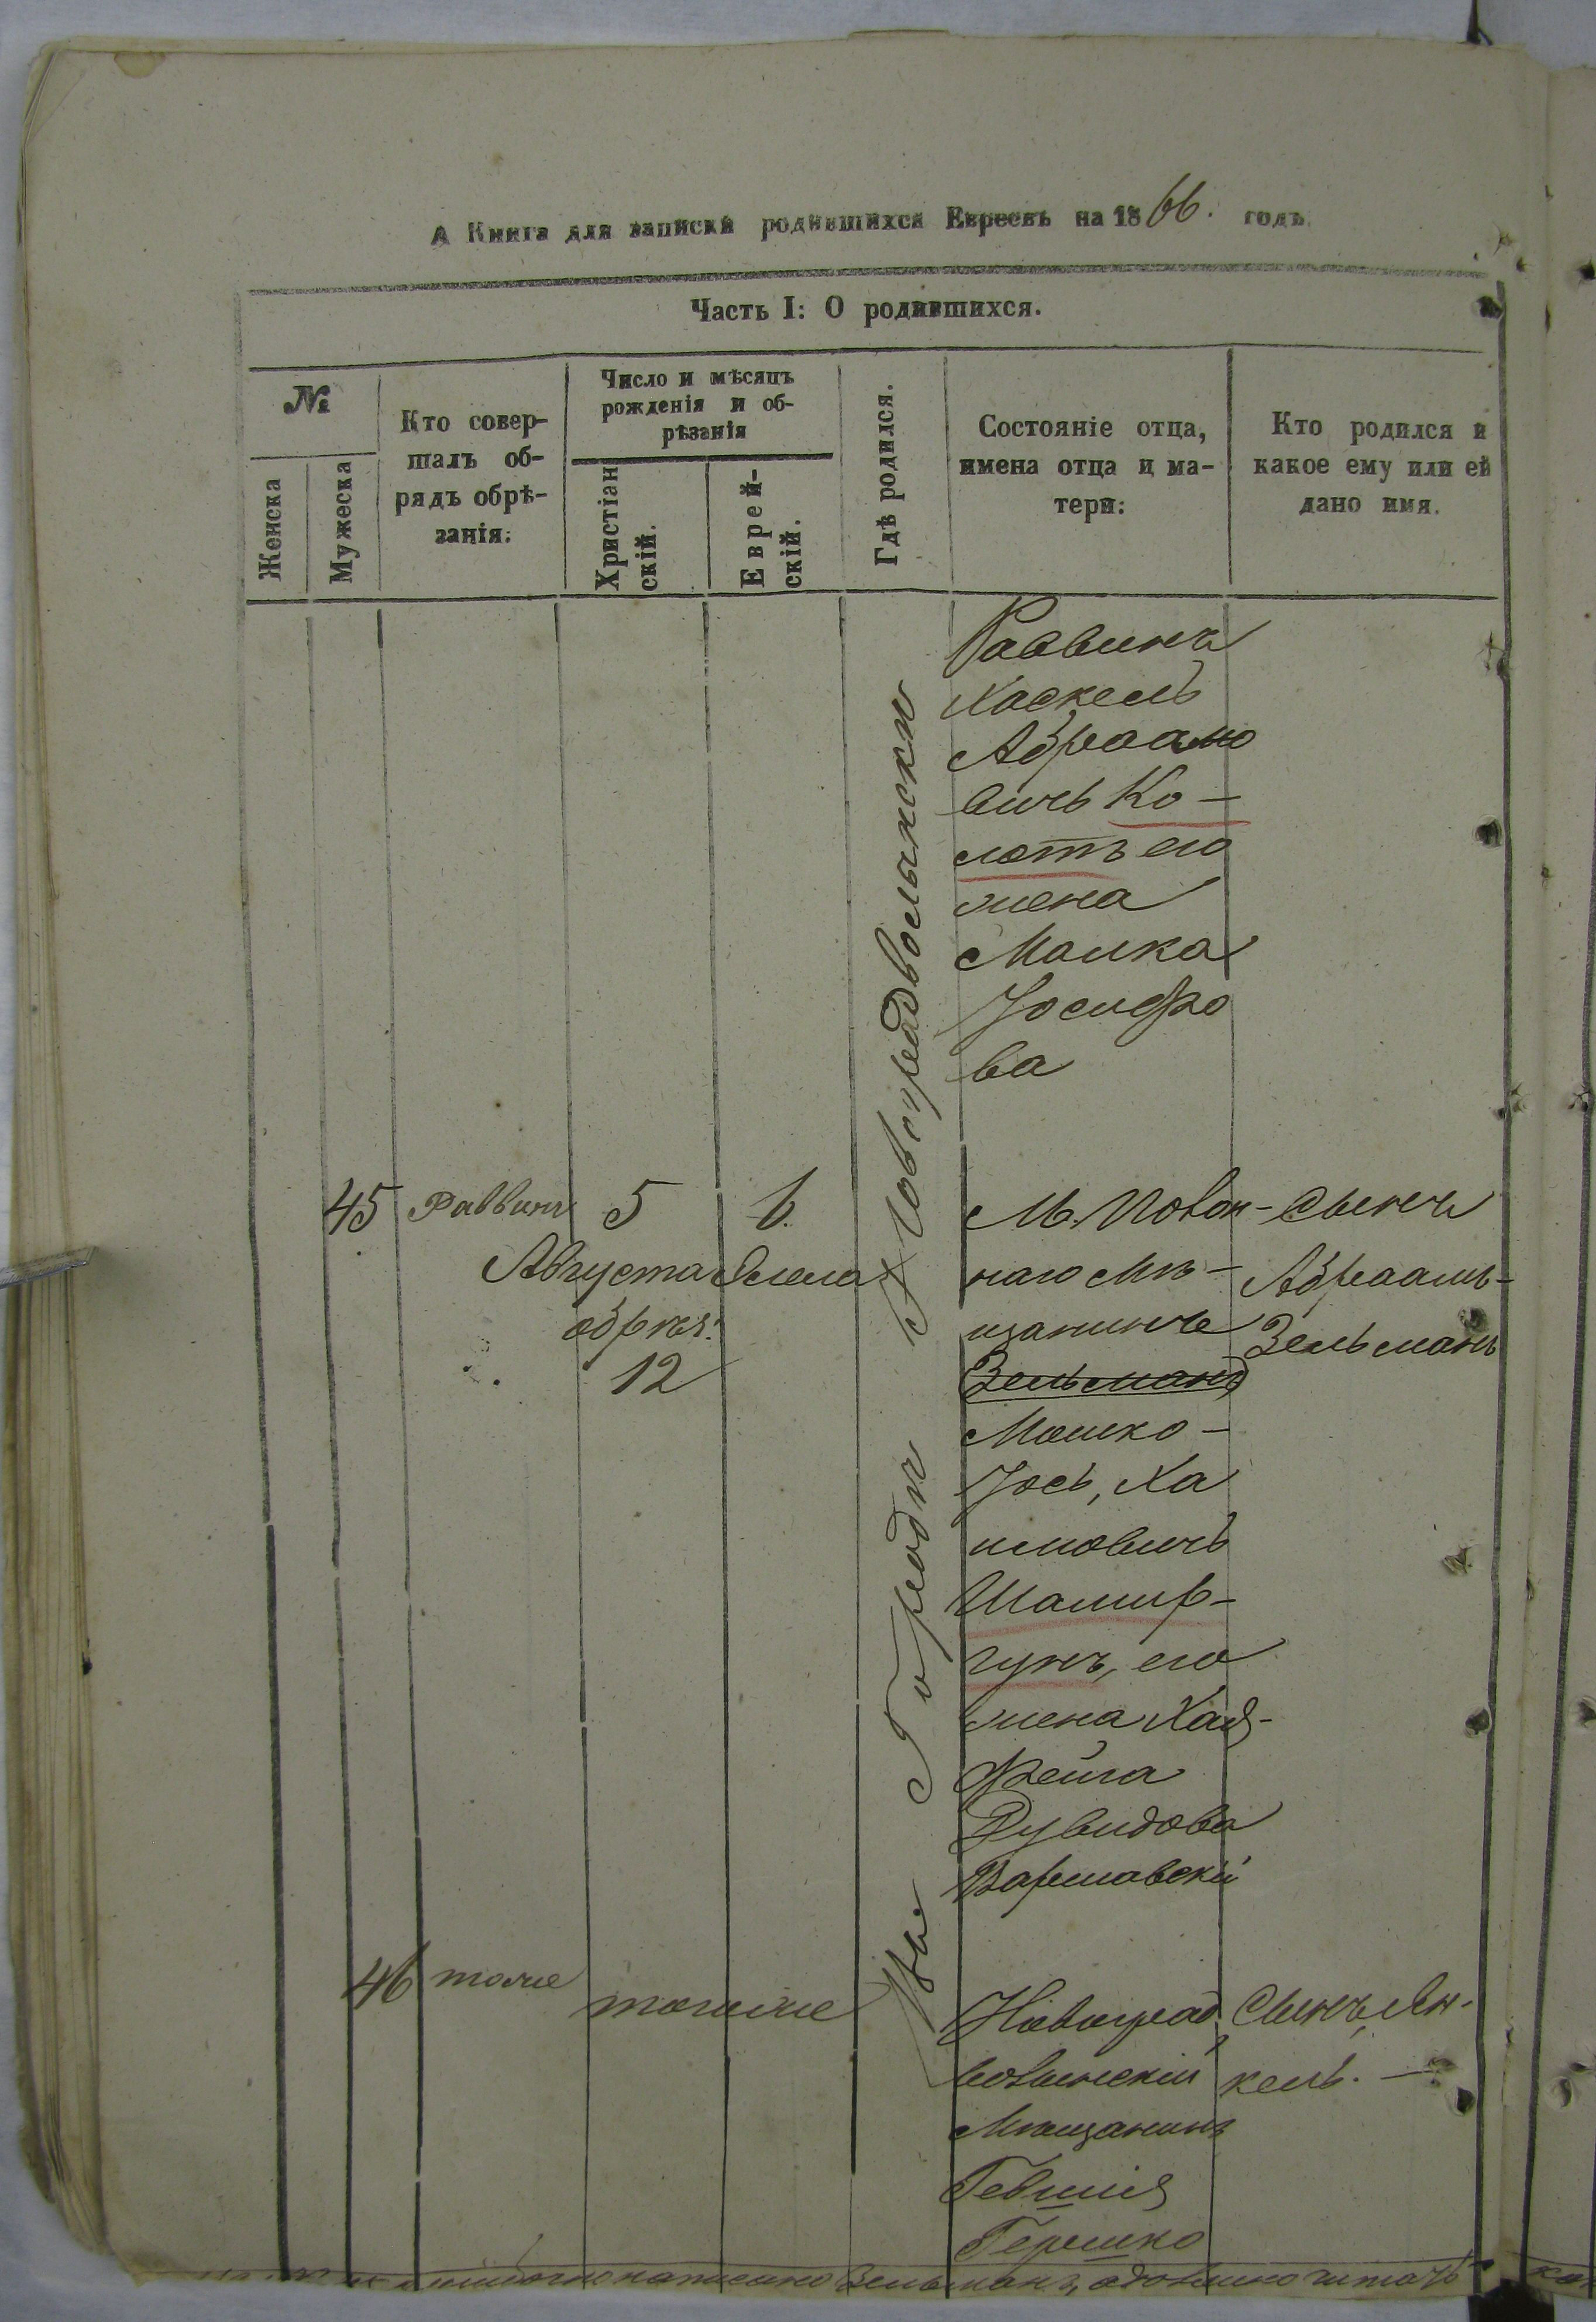 А Книга для записки родившихся Евреевъ на 1866. годъ.
Часть I: О родившихся.
№
Женска
Мужеска
Кто совер-
шалъ об-
рядъ обрѣ-
занія:
Число и мѣсяцъ
рожденія и об-
рѣзанія
Христіан
скій.
Еврей-
скій.
Гдѣ родился.
Состояніе отца,
имена отца и ма-
тери:
Кто родился и
какое ему или ей
дано имя.
Въ Городѣ Новоградволынскѣ
Раввинъ
Хаскель
Абраамо
вичь Ко-
лотъ его
жена
Малка
Іосифо
ва
45 Раввинъ 5 6.
Августа Элела
обрѣз:
12
М. Новон-
наго Мѣ-
щанинъ
Зельманъ
Мошко-
Іось, Ха
имовичь
Шамир-
гунъ, его
жена Хая-
Фейга
Дувидова
Варшавскій
Сынъ
Абраамъ-
Зельманъ
46 тоже
тоже
Новоград
волынскій
Мѣщанинъ
Гевшія
Гершко
Сынъ, Ян-
кель. —
написано Зельманъ, а должно читать